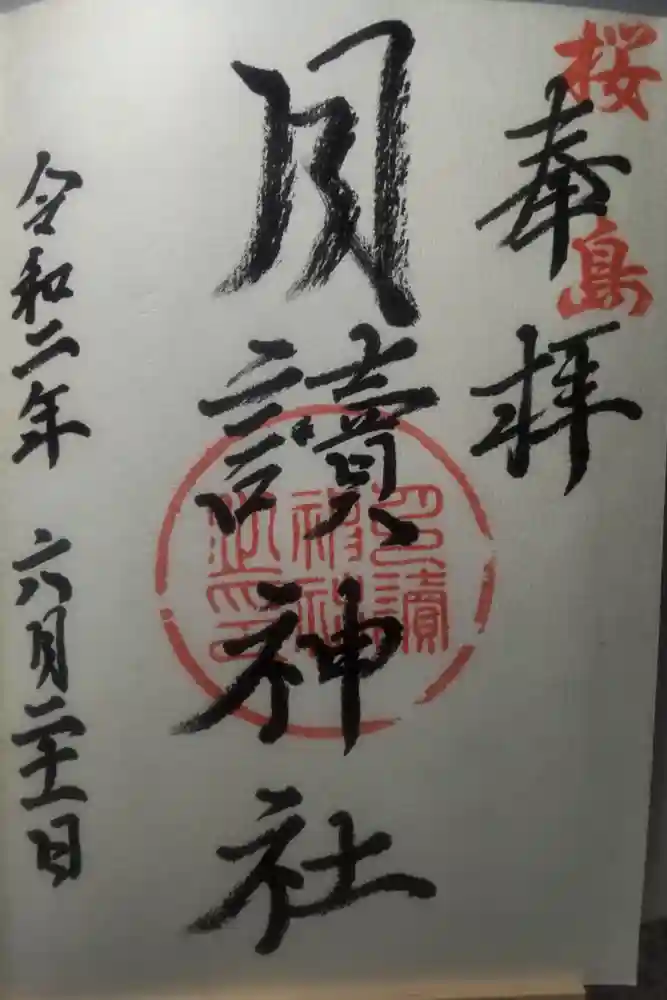 桜島
奉拝
月讀神社
月讀
神社
之印
令和二年 六月二十一日